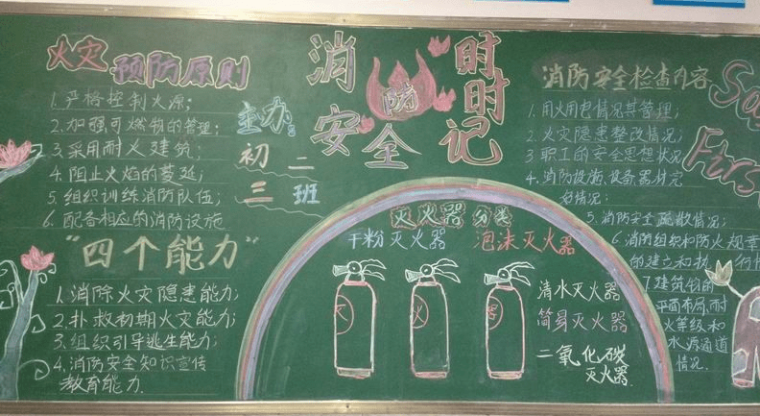 火灾
预防原则
1.严格控制火源;
2.加强可燃物的管理;
3.采用耐火建筑;
4.阻止火焰的蔓延;
5.组织训练消防队伍;
6.配备相应的消防设施
“四个能力”
1.消除火灾隐患能力;
2.扑救初期火灾能力;
3.组织引导逃生能力;
4.消防安全知识宣传
教育能力.
主办
初二
三班
消防时时
安全记
灭火器分类
干粉灭火器
泡沫灭火器
清水灭火器
简易灭火器
二氧化碳
灭火器.
灭
火
器
消防安全检查内容
1.用火用电情况其管理;
2.火灾隐患整改情况;
3.职工的安全思想状况
4.消防设施、设备器材完
好情况;
5.消防安全疏散情况;
6.消防组织和防火规章
的建立和执
7.建筑物的
平面布局,耐
火等级和
水源通道
情况.
First